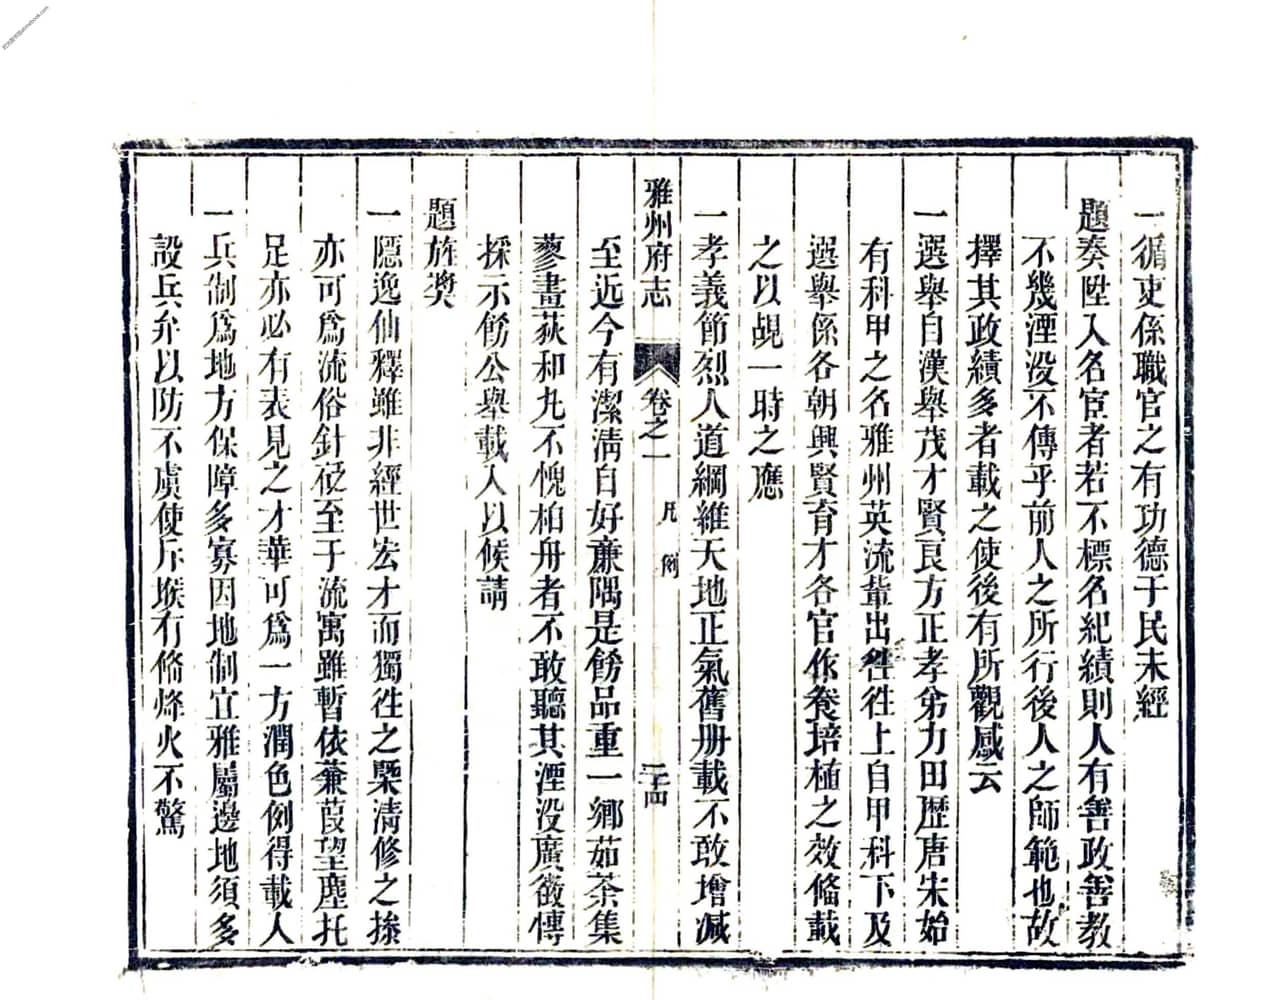 一循吏係職官之有功德于民未經
題奏陞入名宦者若不標名紀績則人有善政善教
不幾湮没不傳乎前人之所行後人之師範也故
擇其政績多者載之使後有所觀感云
一選舉自漢舉茂才賢良方正孝弟力田歷唐宋始
有科甲之名雅州英流輩出徃徃上自甲科下及
選舉係各朝興賢育才各官作養培植之效偹載
之以覘一時之應
一孝義節烈人道綱維天地正氣舊册載不敢增減
雅州府志
卷之一
凡例
二十四
至近今有潔淸自好亷隅是飭品重一鄉茹荼集
蓼畫荻和丸不愧柏舟者不敢聽其湮没廣徵博
採示飭公舉載入以候請
題旌奬
一隱逸仙釋雖非經世宏才而獨徃之槩淸修之操
亦可爲流俗針砭至于流寓雖暫依蒹葭望塵托
足亦必有表見之才華可爲一方潤色例得載人
一兵制爲地方保障多寡因地制宜雅屬邊地須多
設兵弁以防不虞使斥堠有偹烽火不驚